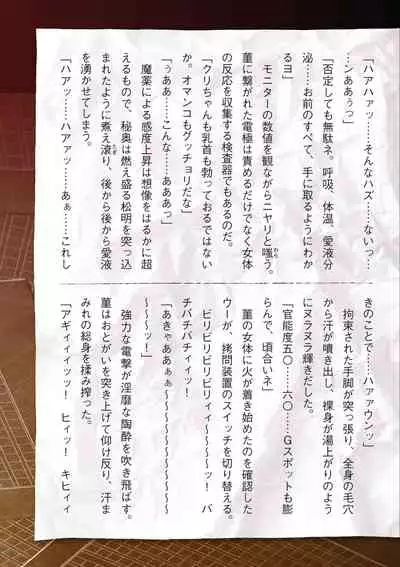 「ハアハァッ……そんなハズ……ないっ…
…ンあぁぅっ」
「否定しても無駄ネ。呼吸、体温、愛液分
泌……お前のすべて、手に取るようにわか
るヨ」
モニターの数値を観ながらニヤリと嗤う。
菫に繋がれた電極は責めるだけでなく女体
の反応を収集する検査器でもあるのだ。
「クリちゃんも乳首も勃っておるではない
か。オマンコもグッチョリだな」
「ぅああ……こんな……あああっ」
魔薬による感度上昇は想像をはるかに超
えるもので、秘奥は燃え盛る松明を突っ込
まれたように煮え滾り、後から後から愛液
を湧かせてしまう。
「ハアッ……ハアァッ……あぁ……これし
きのことで……ハァァウンッ」
拘束された手脚が突っ張り、全身の毛穴
から汗が噴き出し、裸身が湯上がりのよう
にヌラヌラ輝きだした。
「官能度五〇……六〇……Ｇスポットも膨
らんで、頃合いネ」
菫の女体に火が着き始めたのを確認した
ウーが、拷問装置のスイッチを切り替える。
ビリビリビリビリィィ～～～～ッ！　バ
チバチバチィィッ！
「あきゃああぁぁ～～～～～～～～～～～
～～～ッ！」
強力な電撃が淫靡な陶酔を吹き飛ばす。
菫はおとがいを突き上げて仰け反り、汗ま
みれの総身を揉み搾った。
「アギィィィッッ！　ヒィッ！　キヒィィ